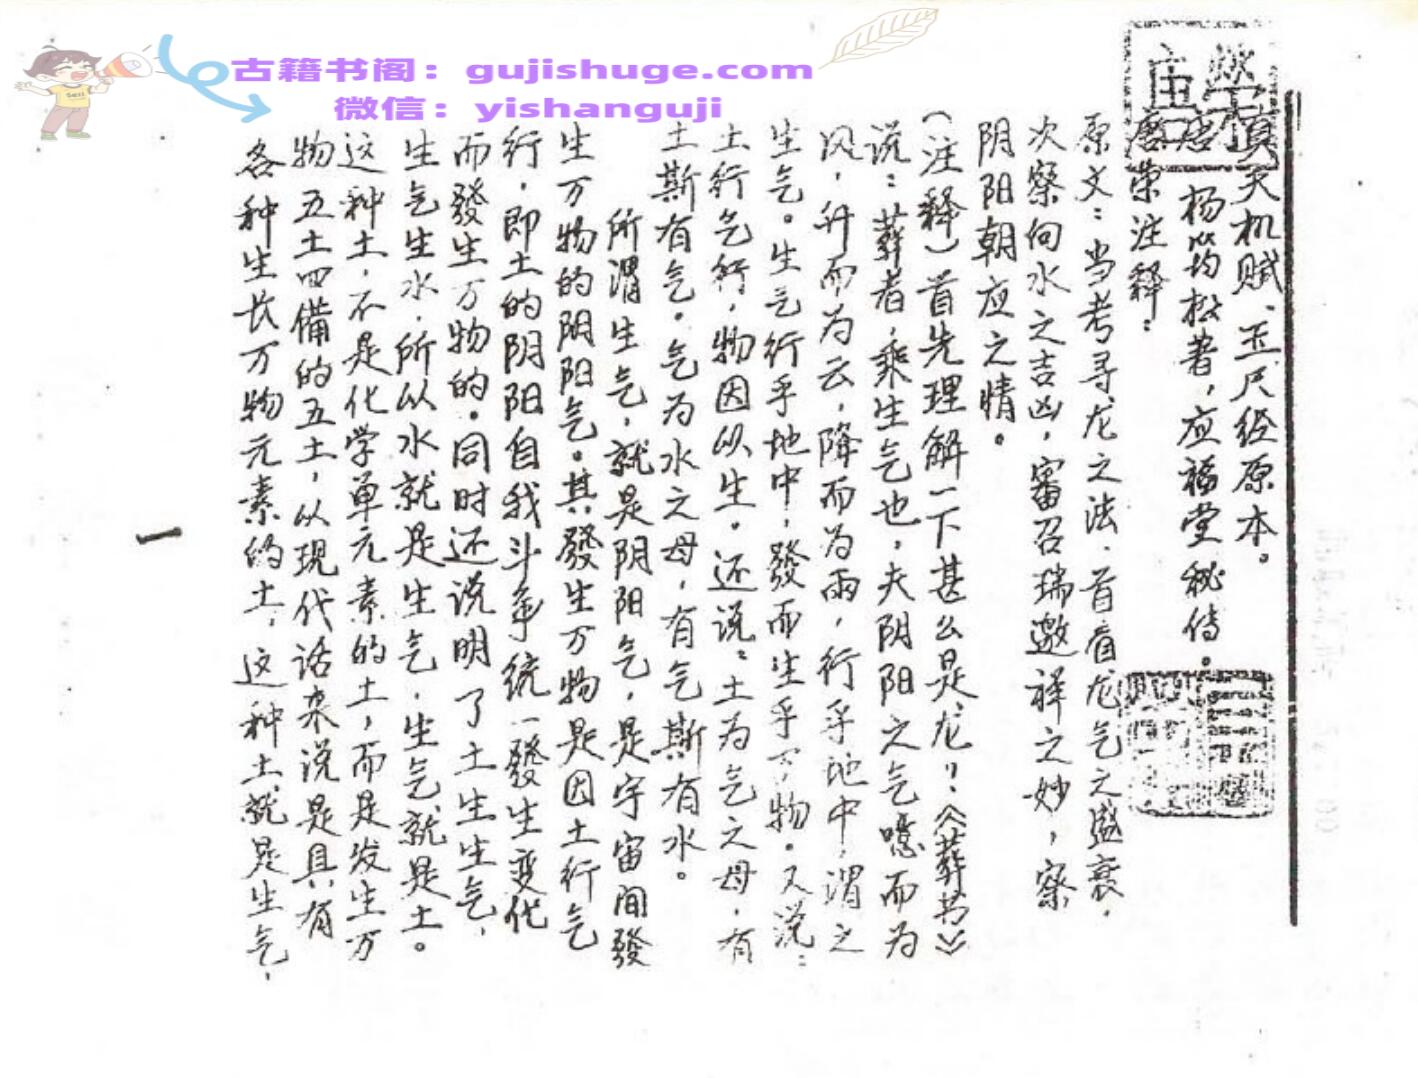 古籍书阁：gujishuge.com
微信：yishanguji
真天机赋、玉尺经原本。
唐 杨筠松著，应福堂秘传。
唐荣注释：
原文：当考寻龙之法，首看龙气之盛衰，
次察向水之吉凶，審召瑞邀祥之妙，察
阴阳朝应之情。
（注释）首先理解一下甚么是龙？《葬书》
说：葬者，乘生气也，夫阴阳之气噫而为
风，升而为云，降而为雨，行乎地中，谓之
生气。生气行乎地中，發而生乎万物。又说：
土行气行，物因以生。还说：土为气之母，有
土斯有气。气为水之母，有气斯有水。
所谓生气，就是阴阳气，是宇宙间發
生万物的阴阳气。其發生万物是因土行气
行，即土的阴阳自我斗争统一發生变化
而發生万物的。同时还说明了土生生气，
生气生水，所以水就是生气，生气就是土。
这种土，不是化学单元素的土，而是发生万
物五土四備的五土，从现代话来说是具有
各种生长万物元素的土，这种土就是生气，
一